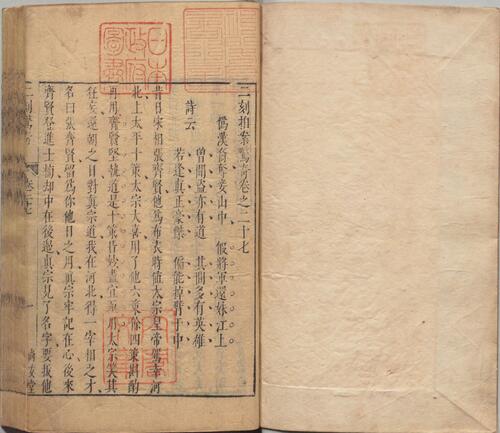 二刻拍案驚奇卷之二十七
偽漢裔奪妾山中 假將軍還姝江上
詩云
曾聞盜亦有道 其間多有英雄
若逢真正豪傑 偏能掉臂于中
昔日宋相張齊賢他爲布衣時值太宗皇帝駕幸河
北上太平十策太宗大喜用了他六策餘四策斟酌
再用齊賢堅執道是十策皆妙盡宜亟用太宗笑其
狂妄還朝之日對真宗道我在河北得一宰相之才
名曰張齊賢留爲你他日之用真宗牢記在心後來
齊賢登進士榜却中在後邊真宗見了名字要拔他
二刻驚奇 卷二十七 尚友堂
日本政府圖書